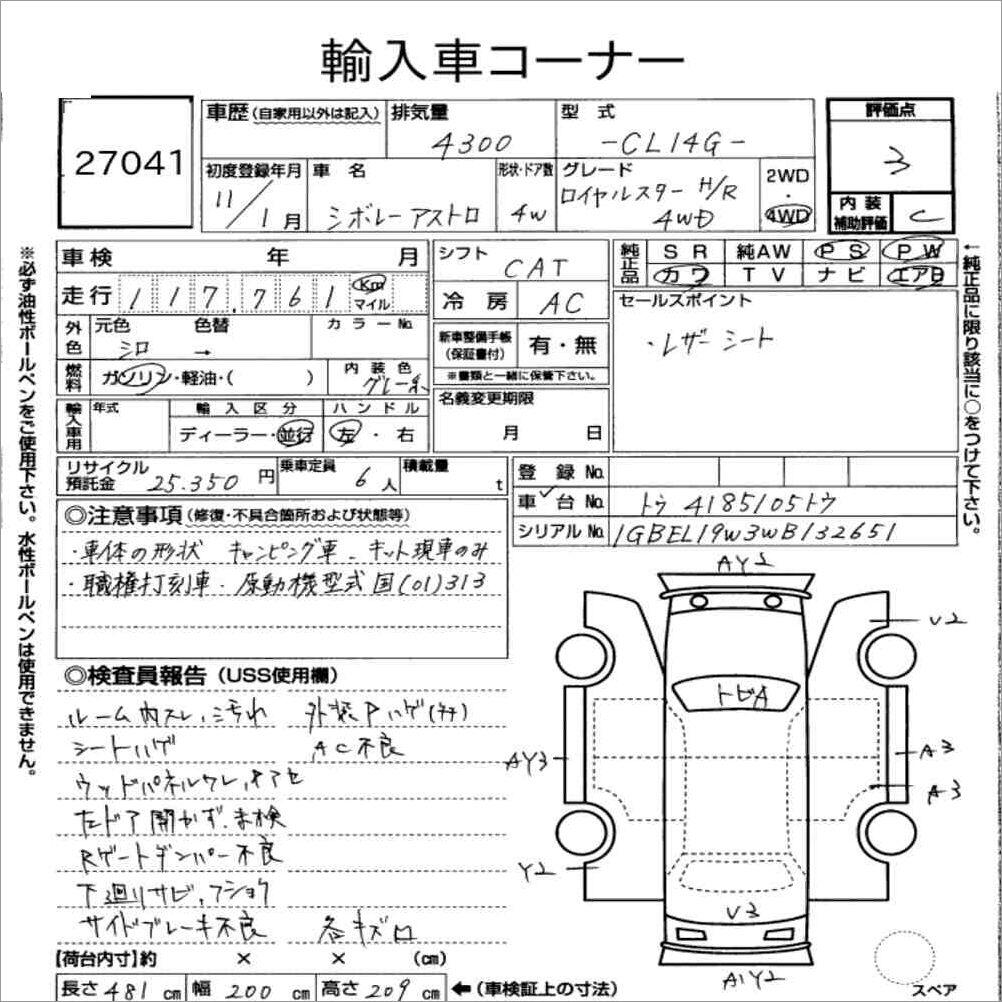 輸入車コーナー
27041
車歴(自家用以外は記入) 排気量 4300 型式 -CL14G- 評価点 3
初度登録年月 11/1月 車名 シボレーアストロ 形状・ドア数 4W グレード ロイヤルスター H/R 4WD 2WD・4WD 内装補助評価 C
車検 年 月 シフト CAT 純正品 SR 純AW PS PW
走行 117,761 Km マイル カワ TV ナビ エアB
冷房 AC セールスポイント
・レザーシート
外色 元色 シロ 色替 → カラーNo. 新車整備手帳(保証書付) 有・無
※書類と一緒に保管下さい。
燃料 ガソリン・軽油・( ) 内装色 グレー系
名義変更期限 月 日
輸入車用 年式 輸入区分 ディーラー・並行 ハンドル 左・右
リサイクル預託金 25.350円 乗車定員 6人 積載量 t
登録No.
車台No. トウ4185105トウ
シリアルNo. 1GBEL19W3WB132651
◎注意事項(修復・不具合箇所および状態等)
・車体の形状 キャンピング車 - キット現車のみ
・職権打刻車・原動機型式 国(01)313
◎検査員報告(USS使用欄)
ルーム内スレ,汚れ 外装Pハゲ
シートハゲ AC不良
ウッドパネルワレ,
左ドア開かず.未検
Rゲートダンパー不良
下廻りサビ,フショク
サイドブレーキ不良 各キズ
AY2
V2
トビA
AY3
A3
A3
Y2
V3
A1Y2
スペア
【荷台内寸】約 × × (cm)
長さ 481 cm 幅 200 cm 高さ 209 cm ←(車検証上の寸法)
※必ず油性ボールペンをご使用下さい。水性ボールペンは使用できません。
←純正品に限り該当に○をつけて下さい。